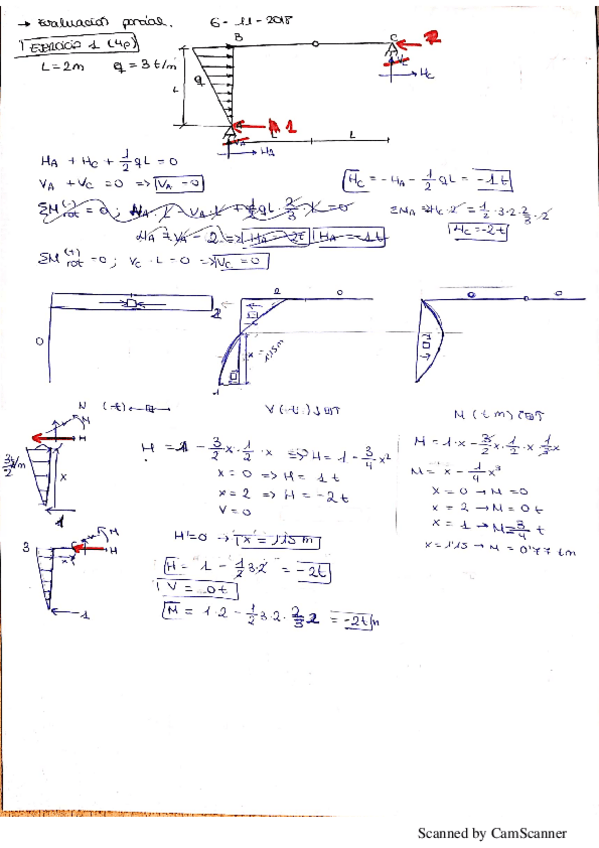 → Evaluación parcial. 6-11-2018
EJERCICIO 1 (4p)
L = 2m q = 3 t/m
B
C
2
V_C
H_C
L
1
V_A
L L
H_A
H_A + H_C + 1/2 qL = 0
V_A + V_C = 0 => V_A = 0
H_C = -H_A - 1/2 qL = -1t
ΣM_A = H_C·2 = 1/2·3·2·2/3·2
H_A = -1t
H_C = -2t
ΣM rot (+) = 0 ; V_C · L = 0 => V_C = 0
0
2
2 0
x = 1'15m
1
0 0
N
M
H
3/2 t/m
x
1
N (t)
V (t)
M (t m)
H = 1 - 3/2 x · 1/2 · x => H = 1 - 3/4 x²
x = 0 => H = 1t
x = 2 => H = -2t
V = 0
M = 1·x - 3/2 x · 1/2 · x · 1/3 x
M = x - 1/4 x³
x = 0 → M = 0
x = 2 → M = 0t
x = 1 → M = 3/4 t
x = 1'15 → M = 0'77 tm
H = 0 → x = 1'15 m
3
M
H
1
H = 1 - 1/2 3·2 = -2t
V = 0t
M = 1·2 - 1/2 3·2· 2/3 2 = -2t m
Scanned by CamScanner